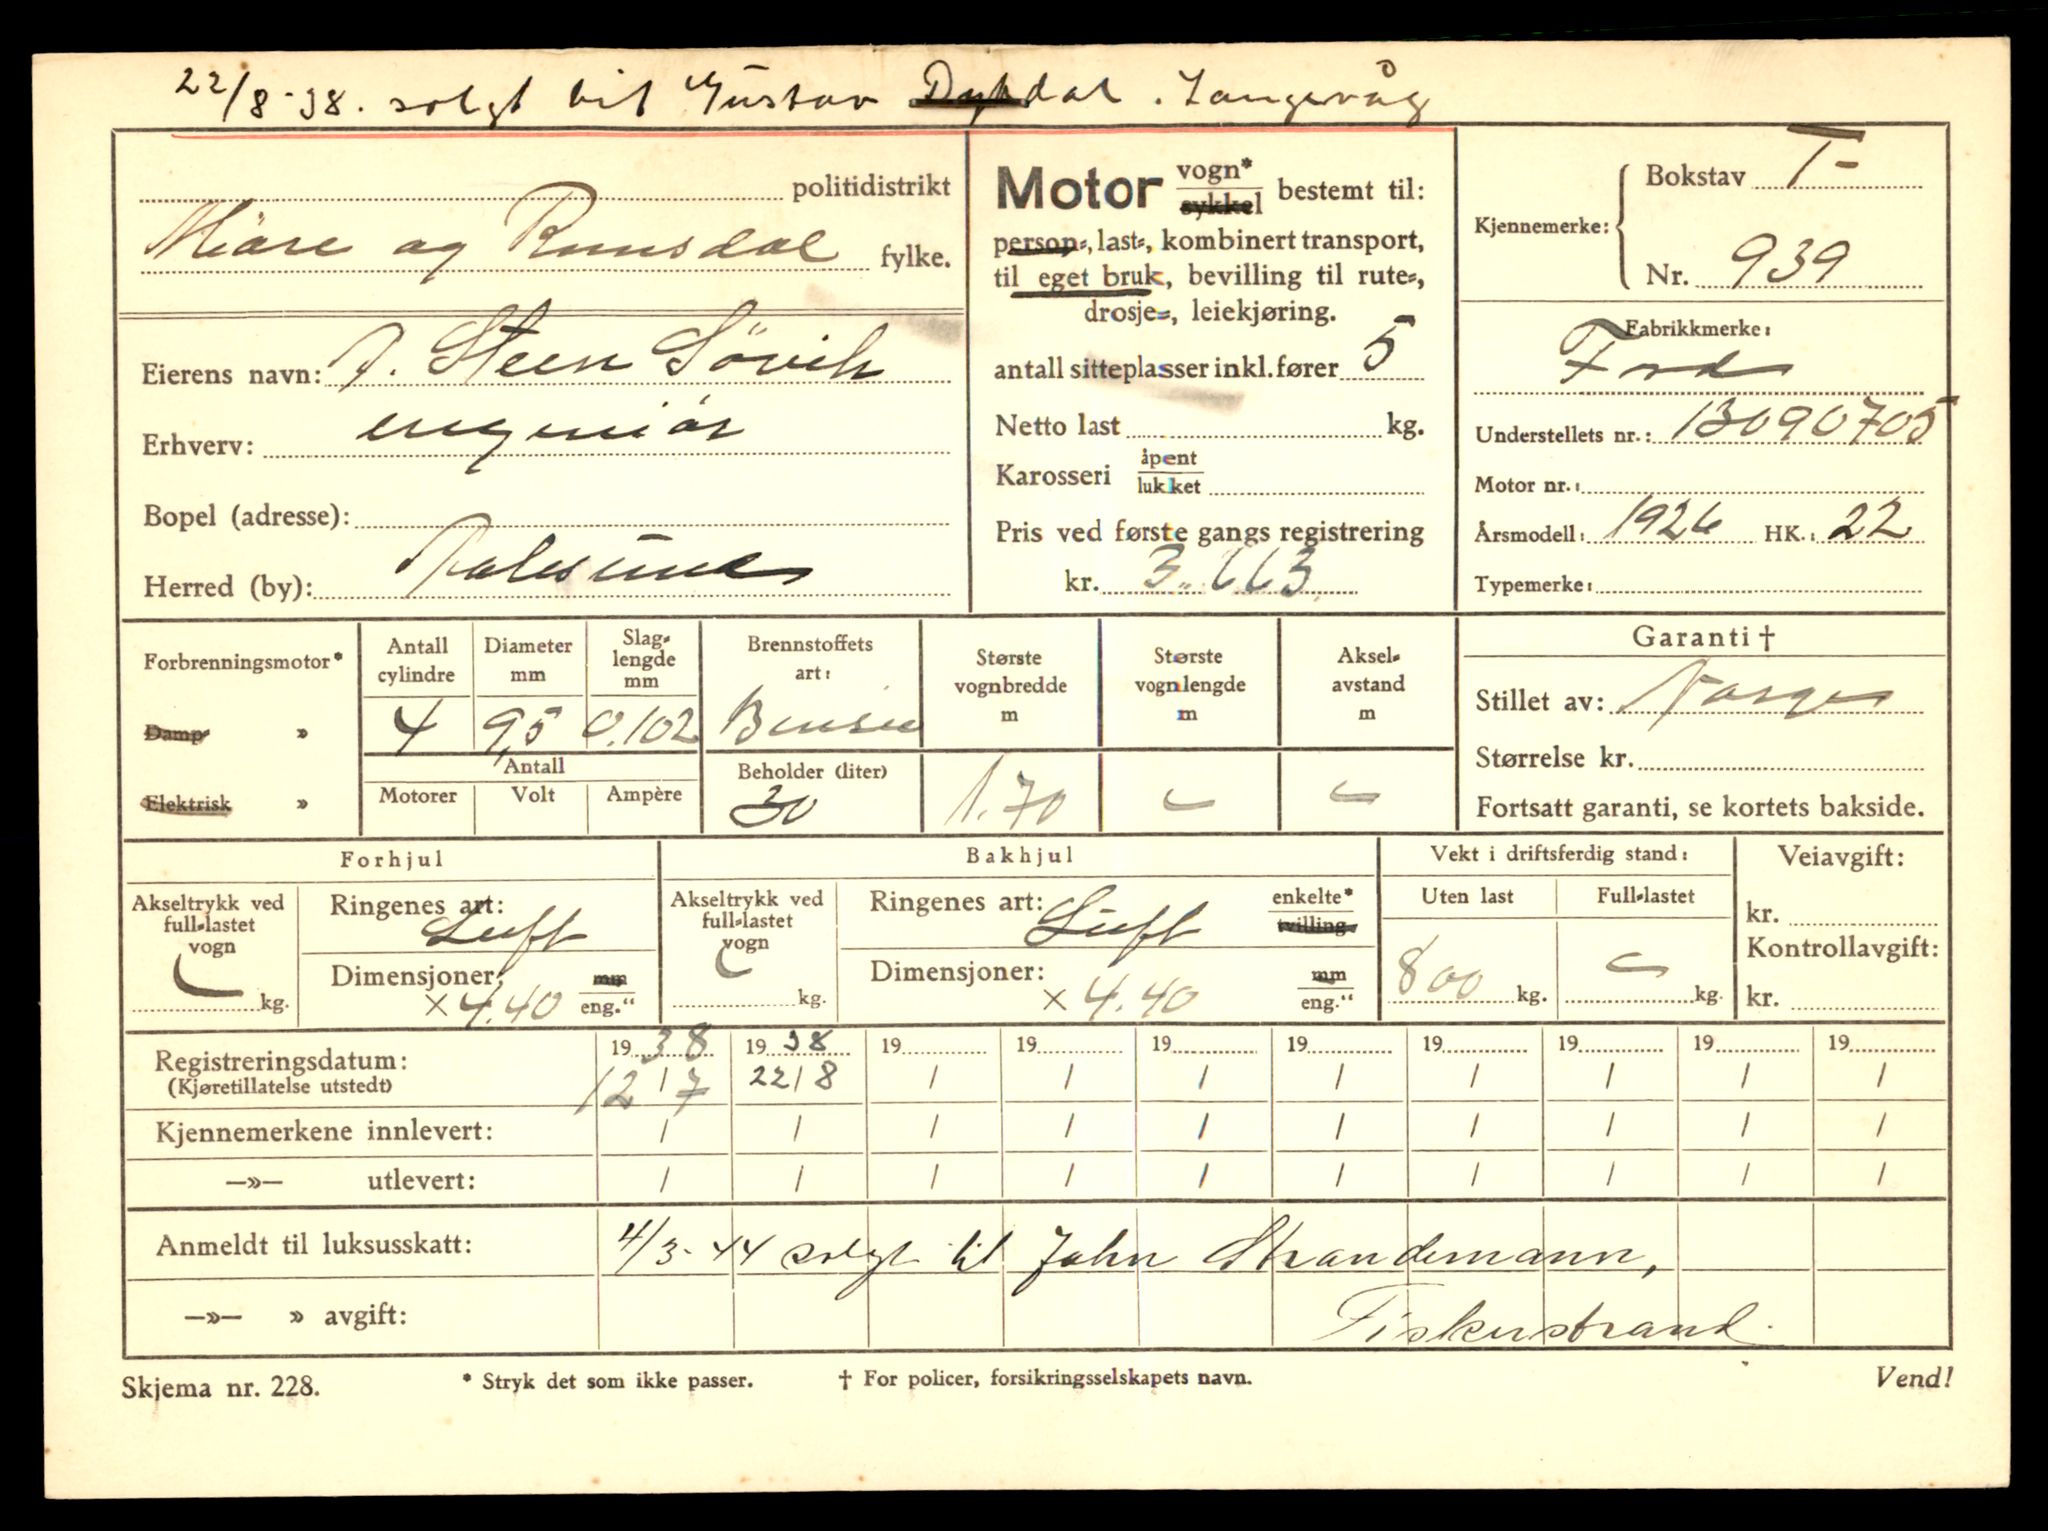 22/8-38. solgt til Gustav Dybdal. Langevåg
politidistrikt
Møre og Romsdal fylke.
Eierens navn: P. Steen Søvik
Erhverv: ingeniør
Bopel (adresse):
Herred (by): Aalesund
Motor vogn* sykkel bestemt til:
person-, last-, kombinert transport,
til eget bruk, bevilling til rute-,
drosje-, leiekjøring.
antall sitteplasser inkl. fører 5
Netto last kg.
Karosseri åpent lukket
Pris ved første gangs registrering
kr.
Kjennemerke: Bokstav T-
Nr. 939
Fabrikkmerke:
Ford
Understellets nr.: 13090705
Motor nr.:
Årsmodell: 1926 HK.: 22
Typemerke:
Forbrenningsmotor*
Damp- »
Elektrisk »
Antall cylindre 4
Diameter mm 9,5
Slaglengde mm 0,102
Antall
Motorer Volt Ampère
Brennstoffets art: Bensin
Beholder (liter) 30
Største vognbredde m 1.70
Største vognlengde m -
Akselavstand m -
Garanti †
Stillet av: Norge
Størrelse kr.
Fortsatt garanti, se kortets bakside.
Forhjul
Akseltrykk ved full-lastet vogn - kg.
Ringenes art: Luft
Dimensjoner: × 4.40 mm eng."
Bakhjul
Akseltrykk ved full-lastet vogn - kg.
Ringenes art: Luft enkelte* tvilling
Dimensjoner: × 4.40 mm eng."
Vekt i driftsferdig stand:
Uten last 800 kg.
Full-lastet - kg.
Veiavgift:
kr.
Kontrollavgift:
kr.
Registreringsdatum: 1938 1938 19 19 19 19 19 19 19 19
(Kjøretillatelse utstedt) 12/7 22/8 / / / / / / / /
Kjennemerkene innlevert: / / / / / / / / / /
—»— utlevert: / / / / / / / / / /
Anmeldt til luksusskatt: 4/3-44 solgt til John Strandemann,
—»— » avgift: Fiskerstrand.
Skjema nr. 228. * Stryk det som ikke passer. † For policer, forsikringsselskapets navn. Vend!